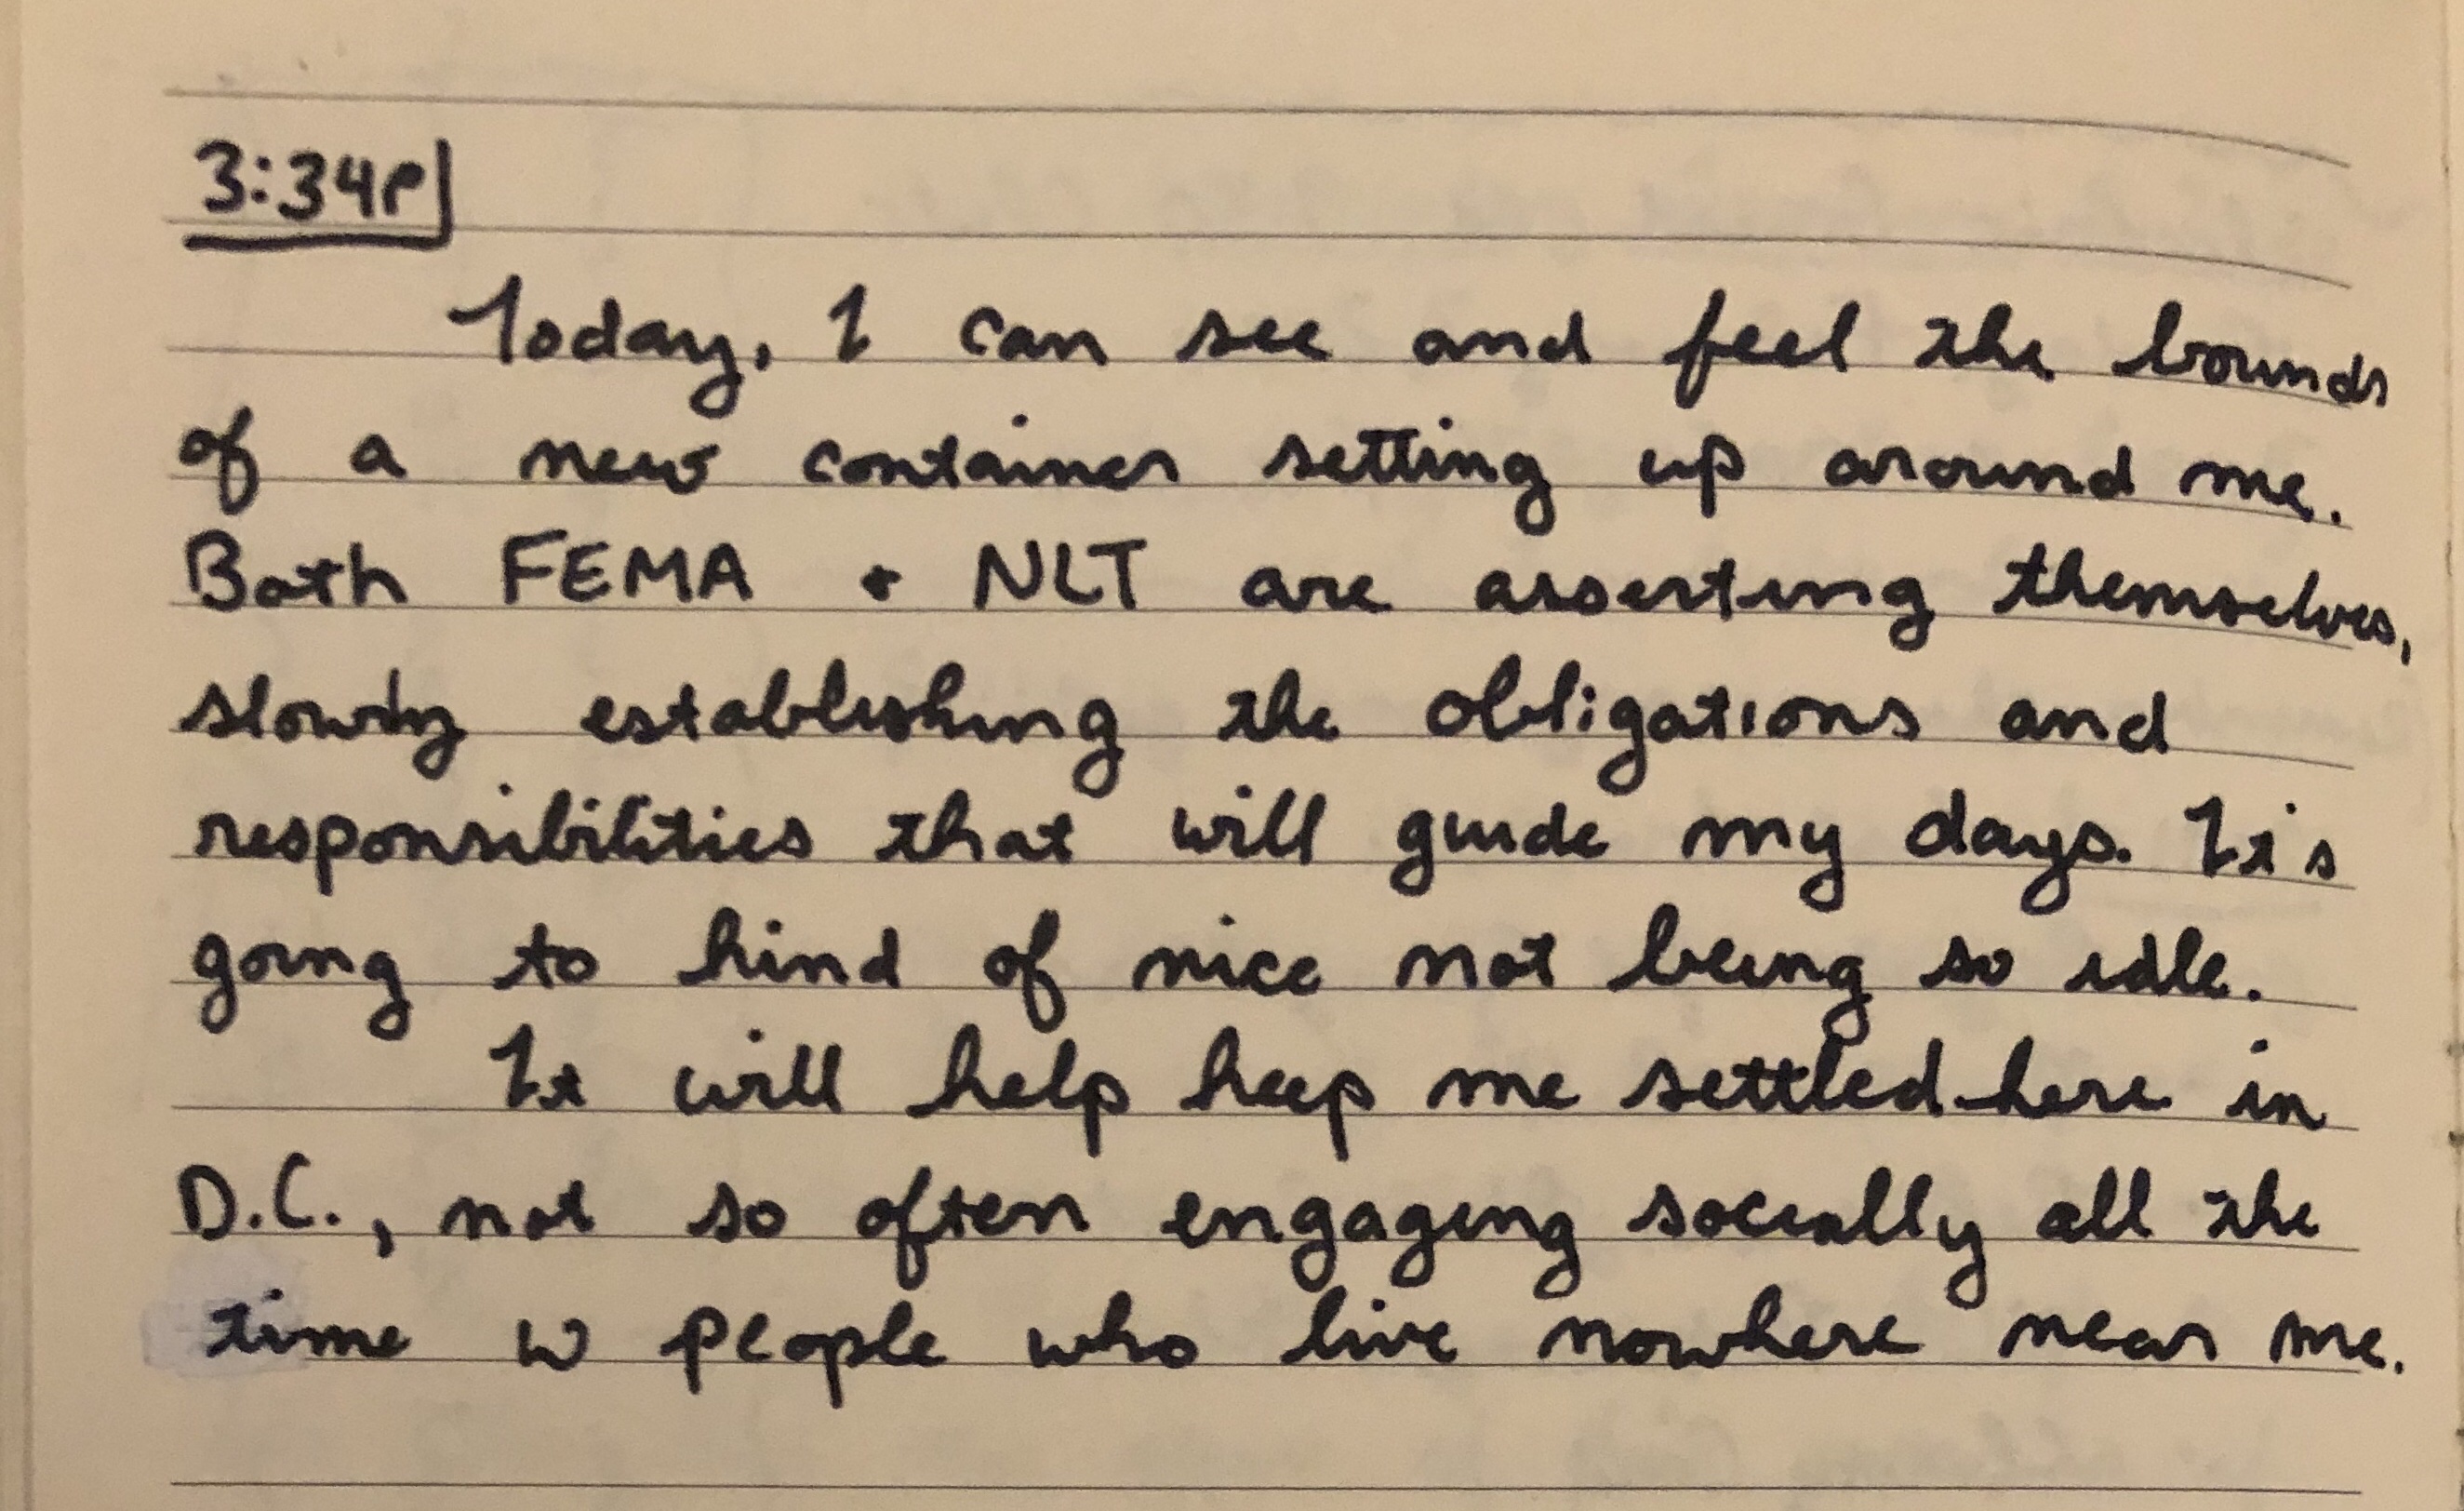 3:34P
Today, I can see and feel the bounds
of a new container setting up around me.
Both FEMA + NLT are asserting themselves,
slowly establishing the obligations and
responsibilities that will guide my days. It's
going to kind of nice not being so idle.
It will help keep me settled here in
D.C., not so often engaging socially all the
time w people who live nowhere near me.